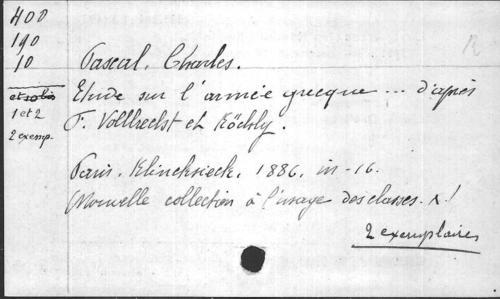 400
190
10
et 10 bis
1 et 2
2 exemp.
R
Pascal, Charles.
Etude sur l'armée grecque ... d'après
F. Vollbrecht et Köchly.
Paris, Klincksieck, 1886, in-16.
(Nouvelle collection à l'usage des classes. X.)
2 exemplaires